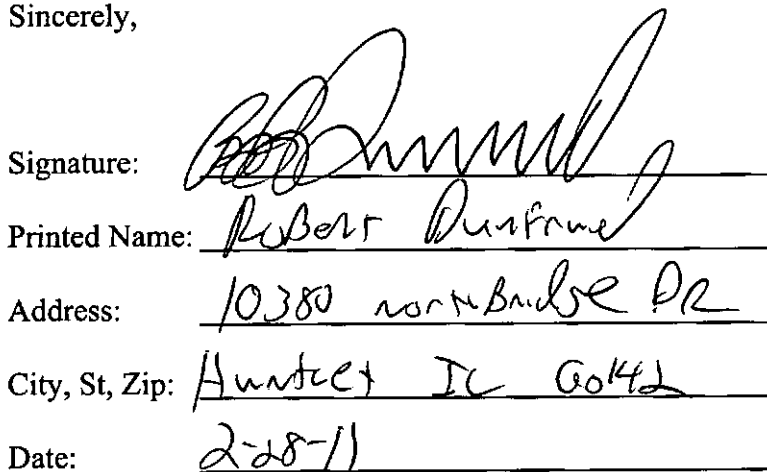 Sincerely,
Signature:
Printed Name: Robert
Address: 10380 NorthBridge DR
City, St, Zip: Huntley IL 60142
Date: 2-28-11